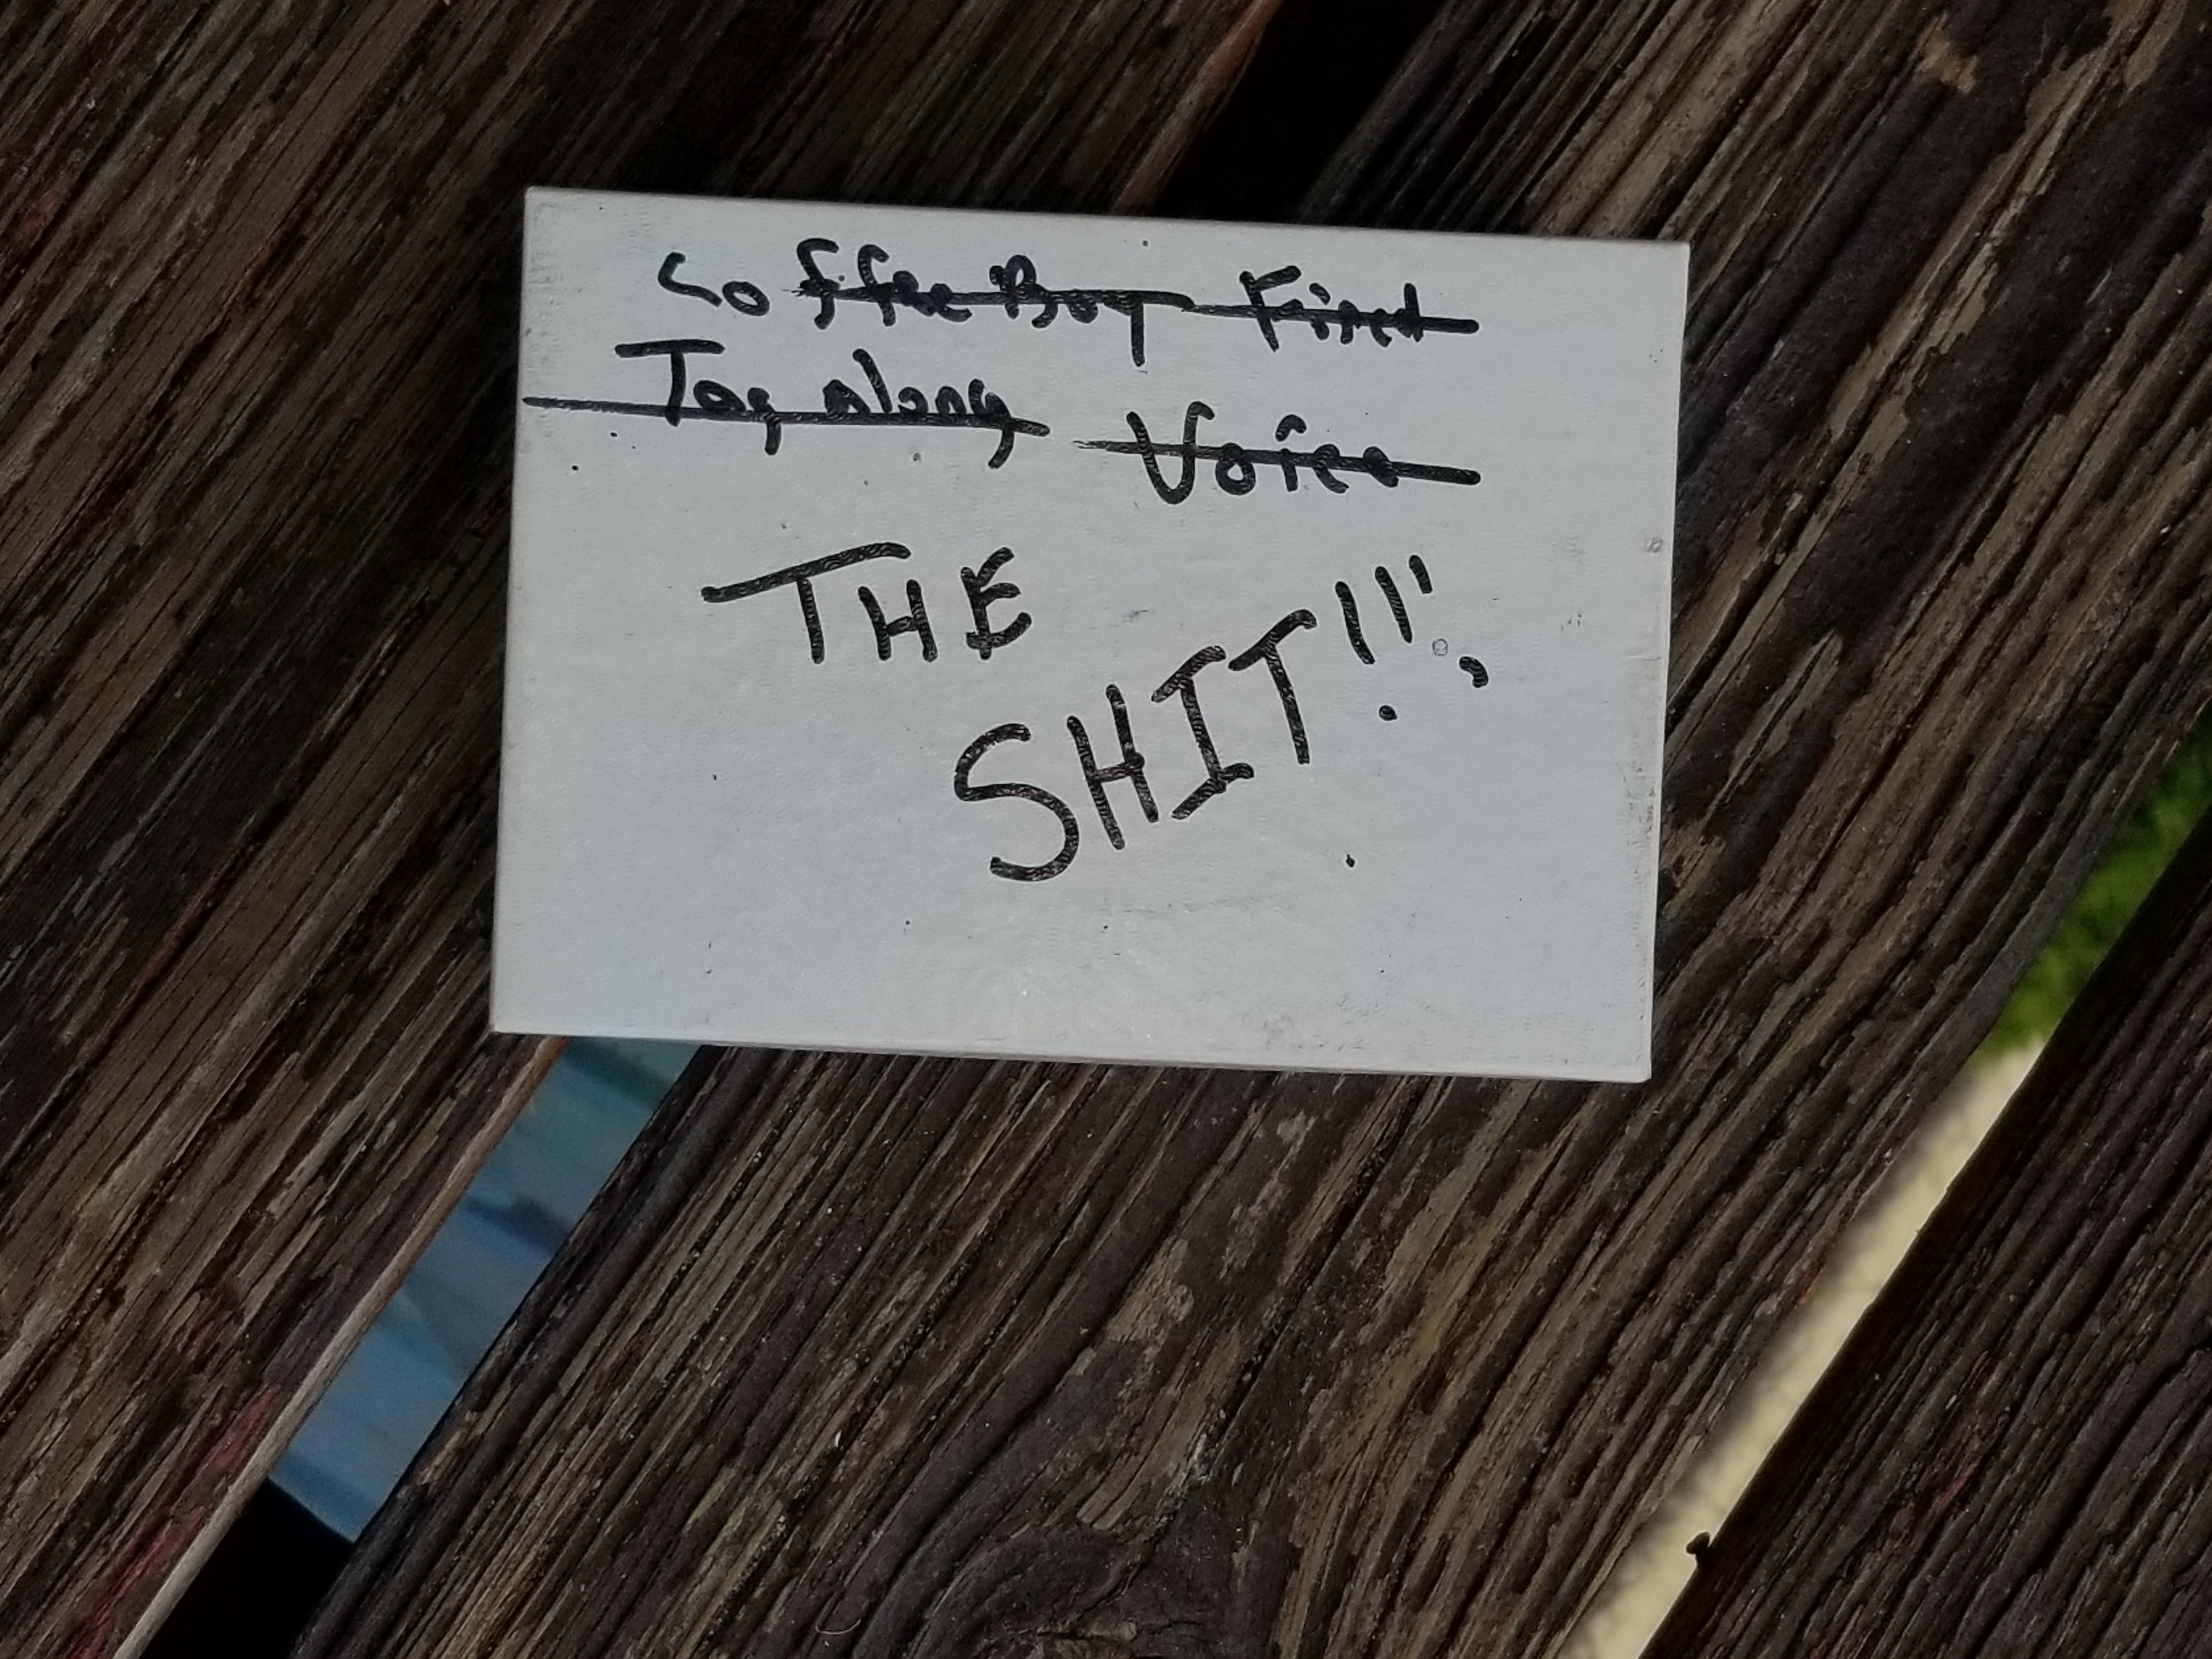 Coffee Boy Fired
Tag along Voice
THE
SHIT!!!